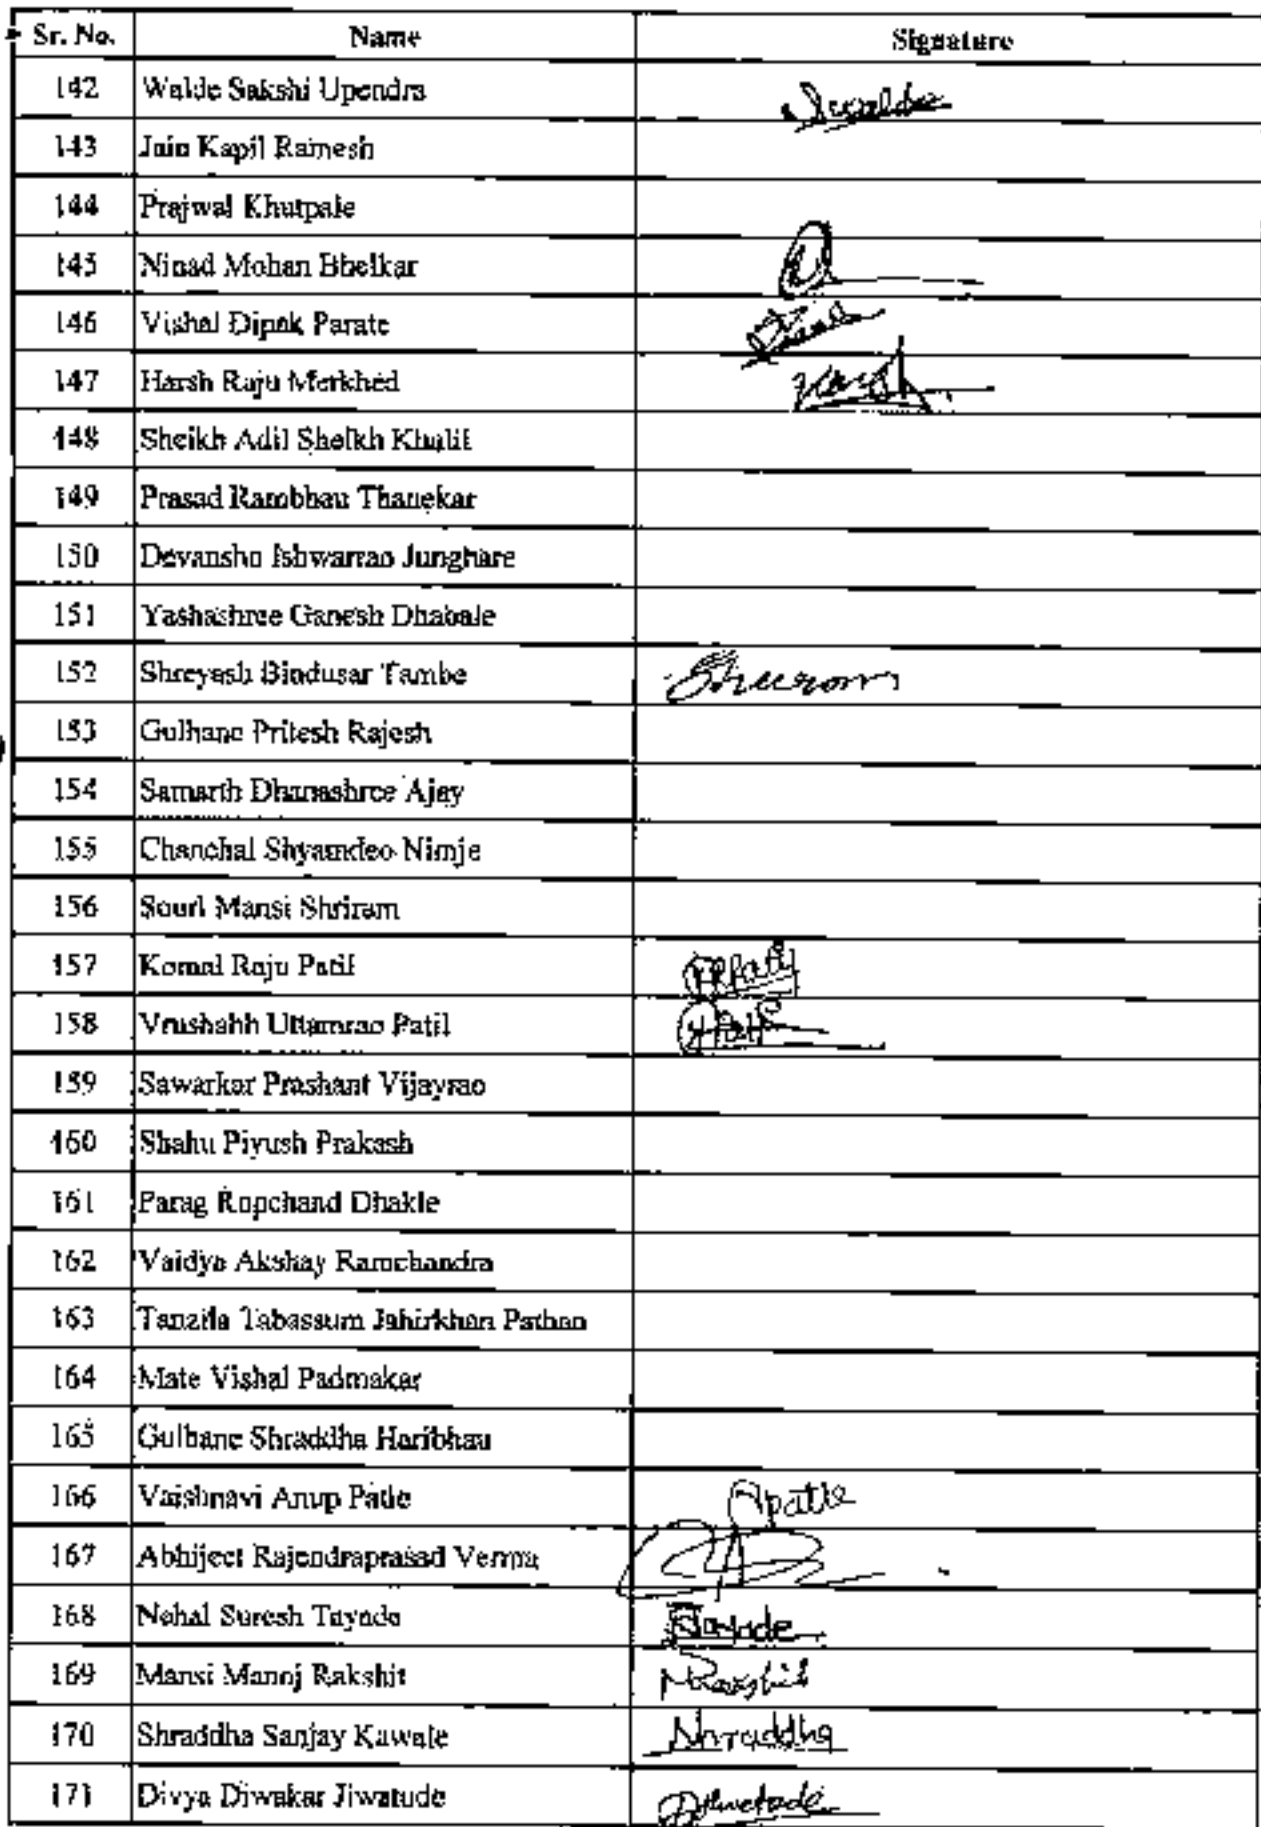 Sr. No. Name Signature
142 Walde Sakshi Upendra
143 Jain Kapil Ramesh
144 Prajwal Khutpale
145 Ninad Mohan Bhelkar
146 Vishal Dipak Parate
147 Harsh Raju Merkhed Harsh
148 Sheikh Adil Sheikh Khalil
149 Prasad Rambhau Thanekar
150 Devanshu Ishwarrao Junghare
151 Yashashree Ganesh Dhabale
152 Shreyash Bindusar Tambe
153 Gulhane Pritesh Rajesh
154 Samarth Dhanashree Ajay
155 Chanchal Shyamdeo Nimje
156 Mansi Shriram
157 Komal Raju Patil
158 Uttamrao Patil
159 Sawarkar Prashant Vijayrao
160 Shahu Piyush Prakash
161 Parag Dhakle
162 Vaidya Akshay Ramchandra
163 Tanzila Tabassum Jahirkhan Pathan
164 Mate Vishal Padmakar
165 Gulhane Shraddha Haribhau
166 Vaishnavi Anup Patle Patle
167 Abhijeet Rajendraprasad Verma
168 Nehal Suresh Tayade
169 Mansi Manoj Rakshit Rakshit
170 Shraddha Sanjay Kawale Shraddha
171 Divya Diwakar Jiwatude